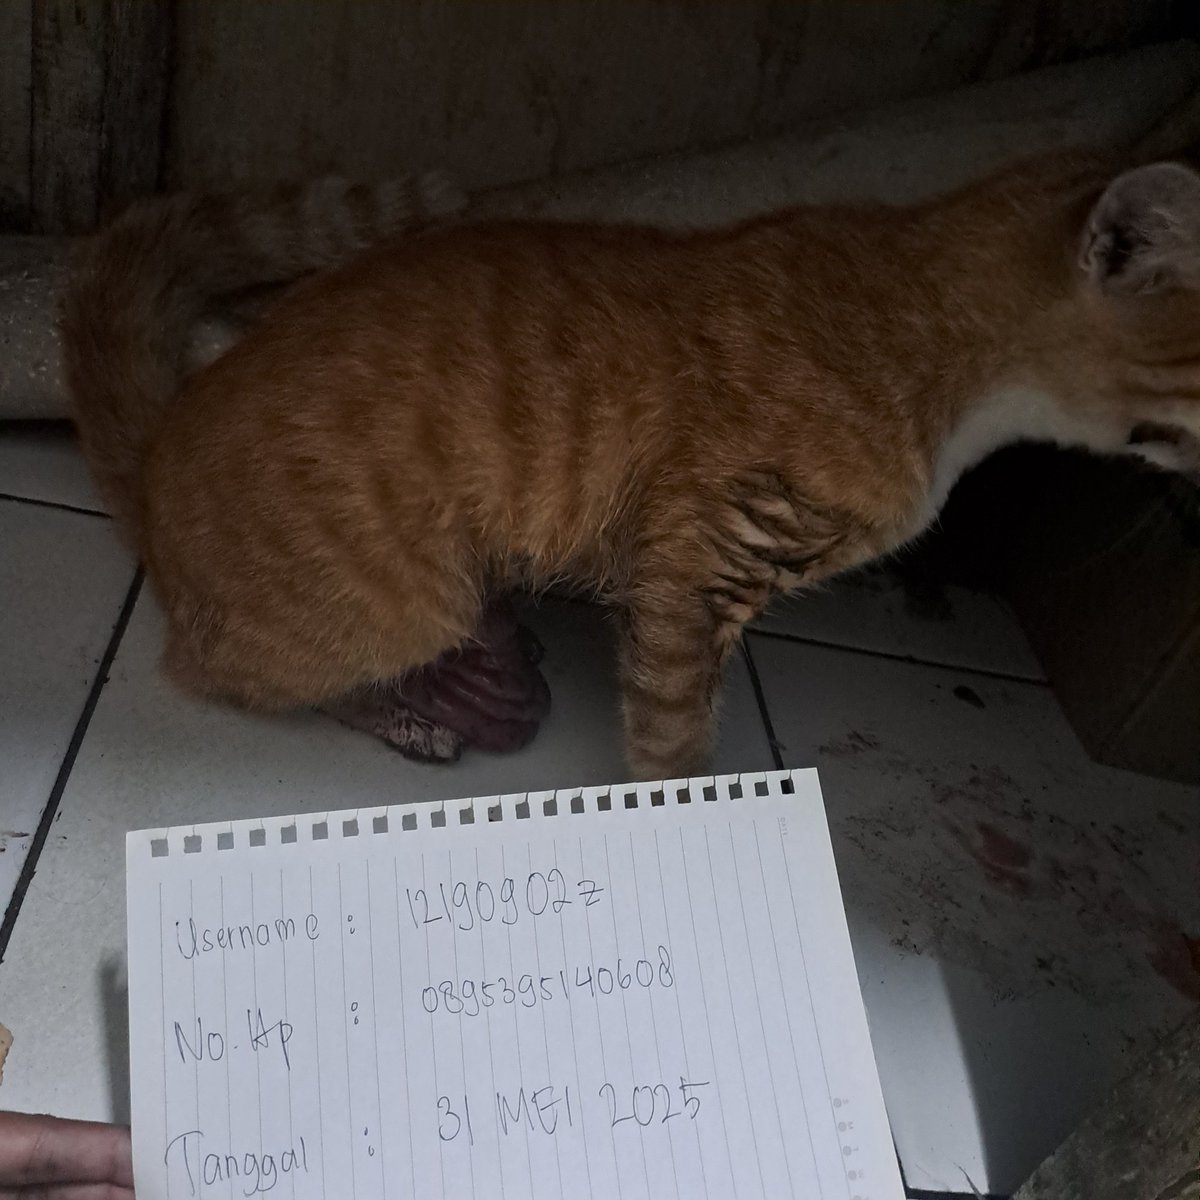 Username : 12190902z
No. Hp : 0895395140608
Tanggal : 31 MEI 2025